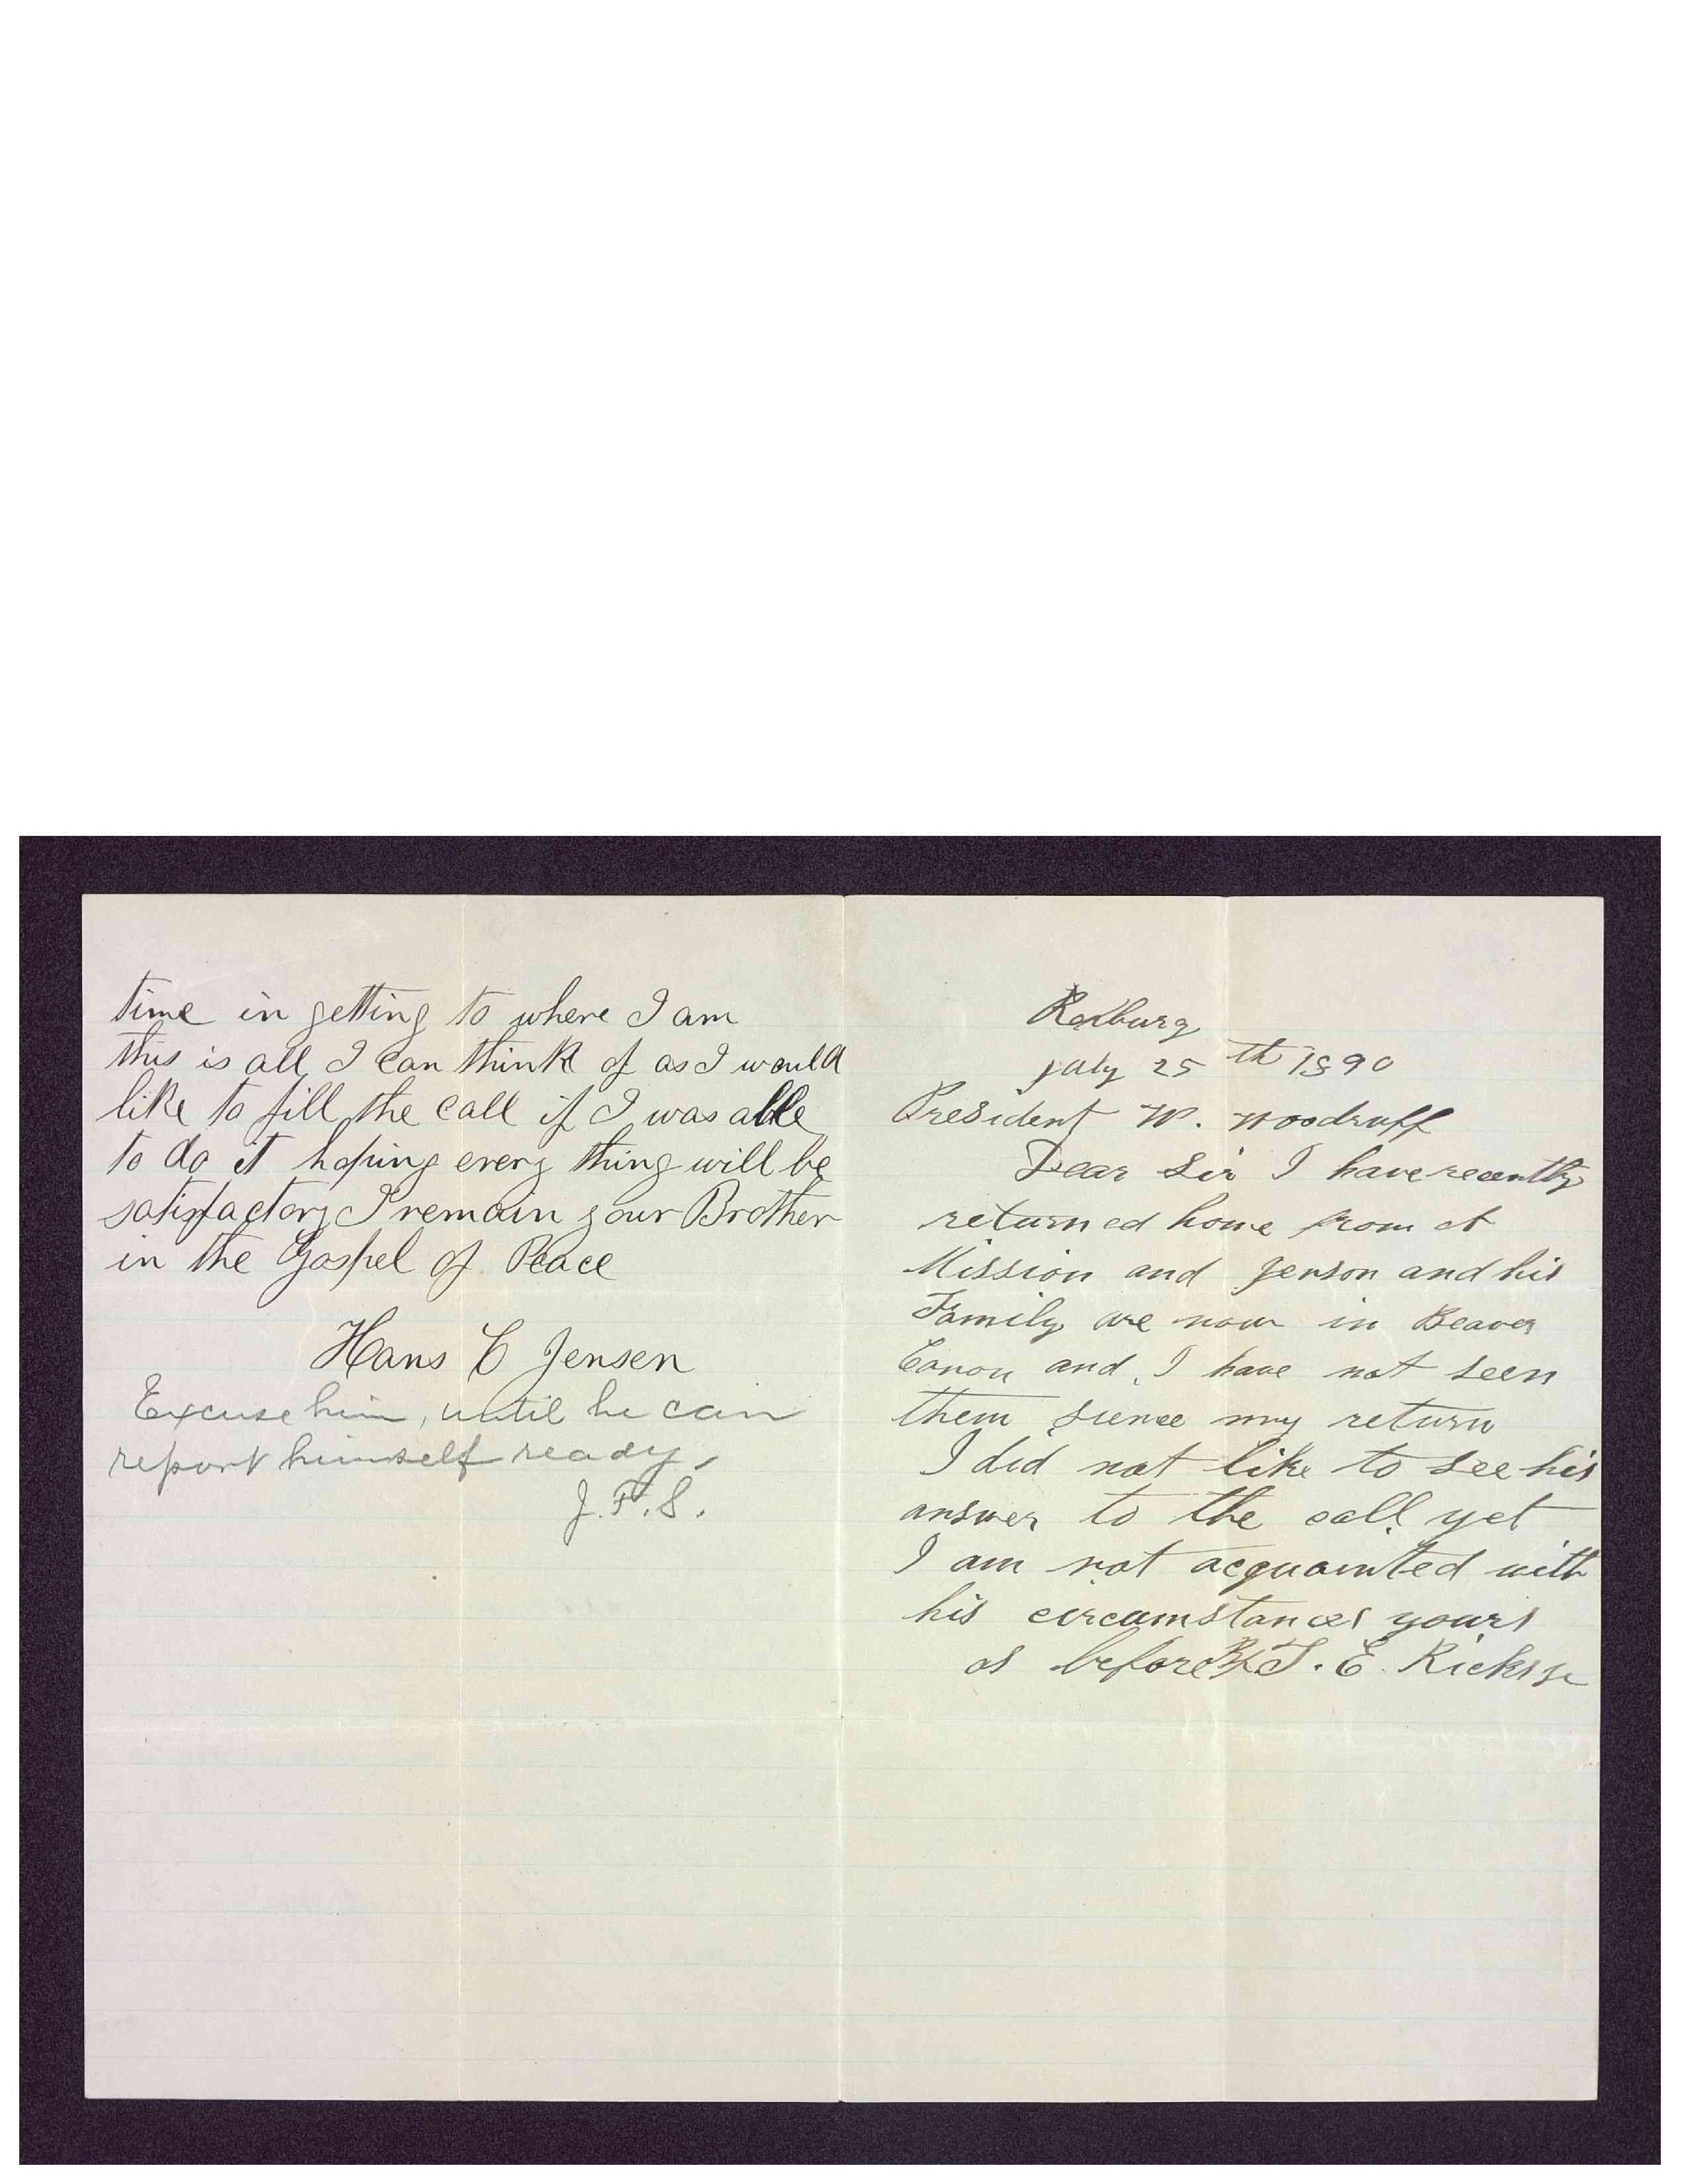 time in getting to where I am
this is all I can think of as I would
like to fill the call if I was able
to do it hoping every thing will be
satisfactory I remain your Brother
in the Gospel of Peace
Hans C Jensen
Excuse him, until he can
report himself ready,
J. F. S.
Rexburg
july 25th 1890
President W. Woodruff
Dear Sir I have recently
returned home from A
Mission and Jenson and his
Family are now in Beaver
Canon and I have not seen
them sience my return
I did not like to see his
answer to the call yet
I am not acquainted with
his circumstances yours
as before Bp T. E. Ricks jr